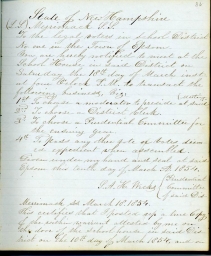 State of New Hampshire
To the legal voters in school District
No one in the Town of Epsom
You are hereby notified to meet at the
School House in said District on
Saturday the 18th day of March inst
at
following business, Viz,
1st To choose a moderator to preside at said
2nd To choose a District Clerk.
3d To choose a Prudential Committee for
the ensuing year.
4th To pass any other
expedient when assembled.
Given under my hand and seal at said
Epsom this tenth day of March A.D. 1854.
Prudential
Committee
of said Dis
Merrimack SS March 18, 1854.
This certifies that I posted up a true Copy
of the within warrant attested by me on
the door of the school house in said Dis
trict on the 10th day of March 1854, and